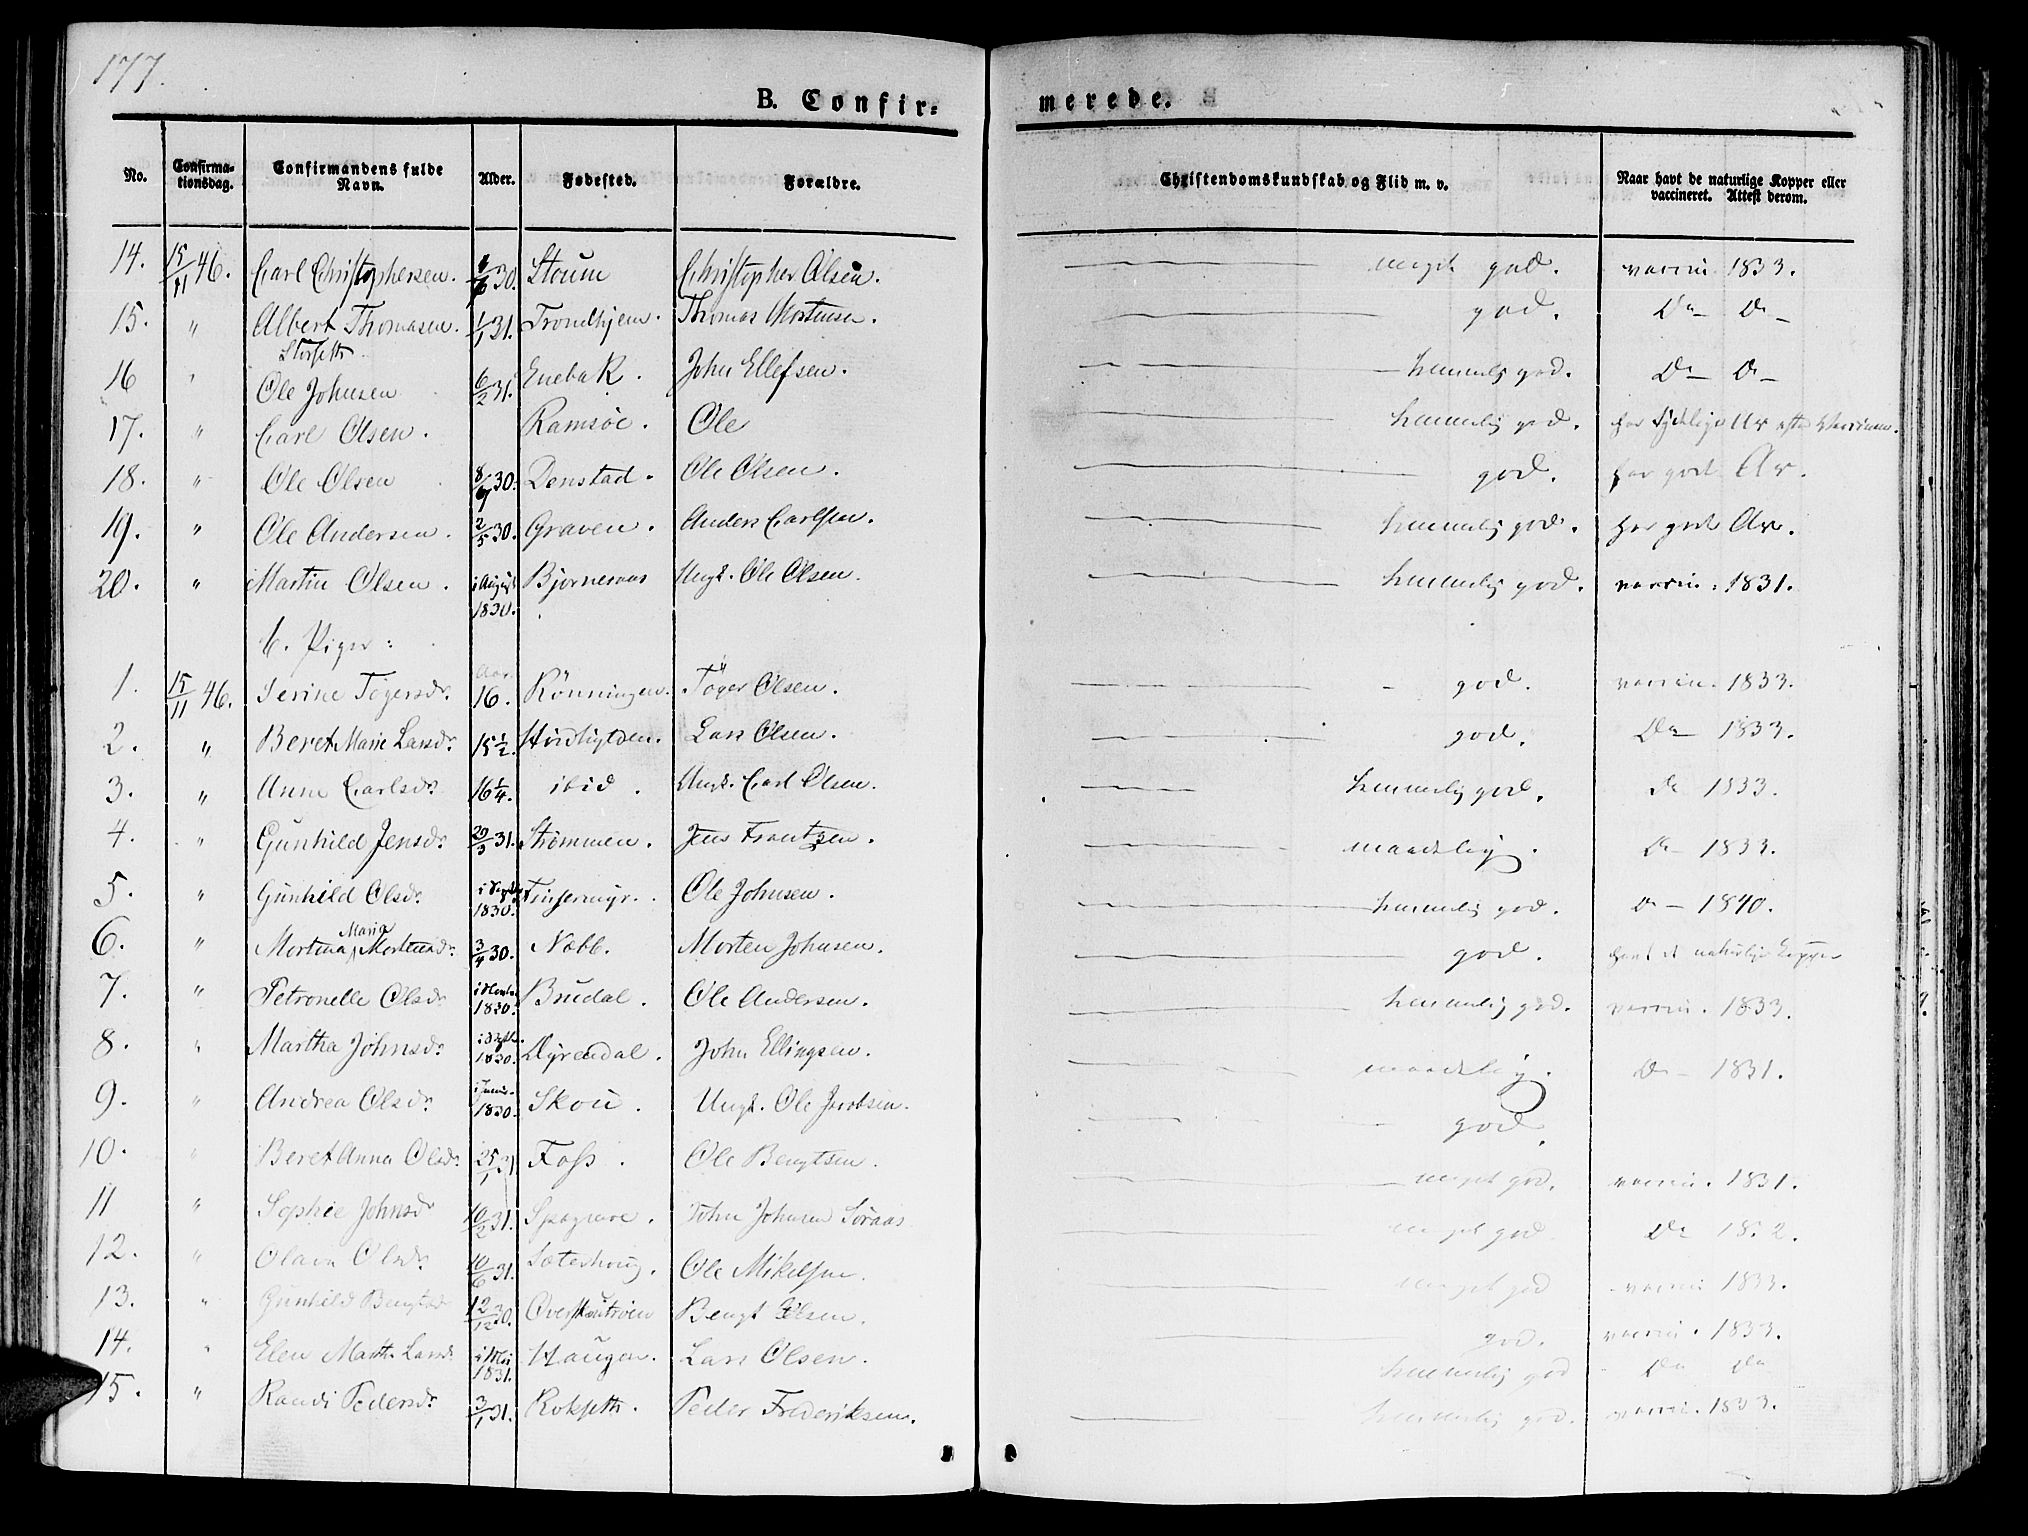 177.
B. Confir=
merede.
No. Confirma-tionsdag. Confirmandens fulde Navn. Alder. Fødested. Forældre. Christendomskundskab og Flid m. v. Naar havt de naturlige Kopper eller vaccineret. Attest derom.
14. 15/11 46. Carl Christophersen. 30. Stoum Christopher Olsen. meget god. vaccin. 1833.
15. " Albert Thomasen. 1/1 31. Trondhjem. Thomas Mortensen. god. Do - Do -
16 " Ole Johnsen 6/2 31. Enebak. John Ellefsen. temmelig god. Do - Do -
17. " Carl Olsen. Ramsöe. Ole temmelig god. har tydelige Ar efter Vaccinen.
18. " Ole Olsen 8/ 30. Denstad. Ole Olsen. god. har gode Ar.
19. " Ole Andersen. 2/5 30. Graven. Anders Carlsen. temmelig god. har gode Ar.
20. " Martin Olsen. i August 1830. Bjørneraas Ungk. Ole Olsen. temmelig god. vaccin. 1831.
b. Piger:
1. 15/11 46. Serine Tögersdr. Aar. 16. Rönningen. Töger Olsen. god. vaccin. 1833.
2. " Beret Marie Larsdr. 15 1/2. Lars Olsen. god. Do 1833.
3. " Anne Carlsdr. 16 1/4. ibid. Ungk. Carl Olsen. temmelig god. Do 1833.
4. " Gunhild Jensdr. 20/3 31. Strømmen. Jens Frantzen. maadelig. Do - 1833.
5. " Gunhild Olsdr. 1830. Ole Johnsen. temmelig god. Do - 1840.
6. " Mortina Maria Mortensdr. 3/4 30. Nebb. Morten Johnsen. god. havt de naturlige Kopper
7. " Petronelle Olsdr. 1830. Brudal. Ole Andersen. temmelig god. vaccin. 1833.
8. " Martha Johnsdr. i Septb. 1830. Dyrendal. John Ellingsen. maadelig. Do - 1831.
9. " Andrea Olsdr. 1830. Skou. Ungk. Ole Jacobsen. god.
10. " Beret Anna Olsdr. 25/1 31 Foss. Ole Bengtsen. meget god. vaccin. 1831.
11 " Sophie Johnsdr 10/2 31. John Johnsen Söraas meget god Do
12. " Olava Olsdr. 10/6 31. Sæterhoug. Ole Mikelsen. meget god vaccin 1833.
13. " Gunhild Bengtsdr 12/12 30. Bengt Olsen. god. vaccin. 1833.
14. " Elen Marth. Larsdr. i Mai 1831. Haugen. Lars Olsen. temmelig god Do Do
15. " Randi Pedersdr. 3/1 31. Rokseth. Peder Frederiksen. temmelig god. vaccin. 1833.